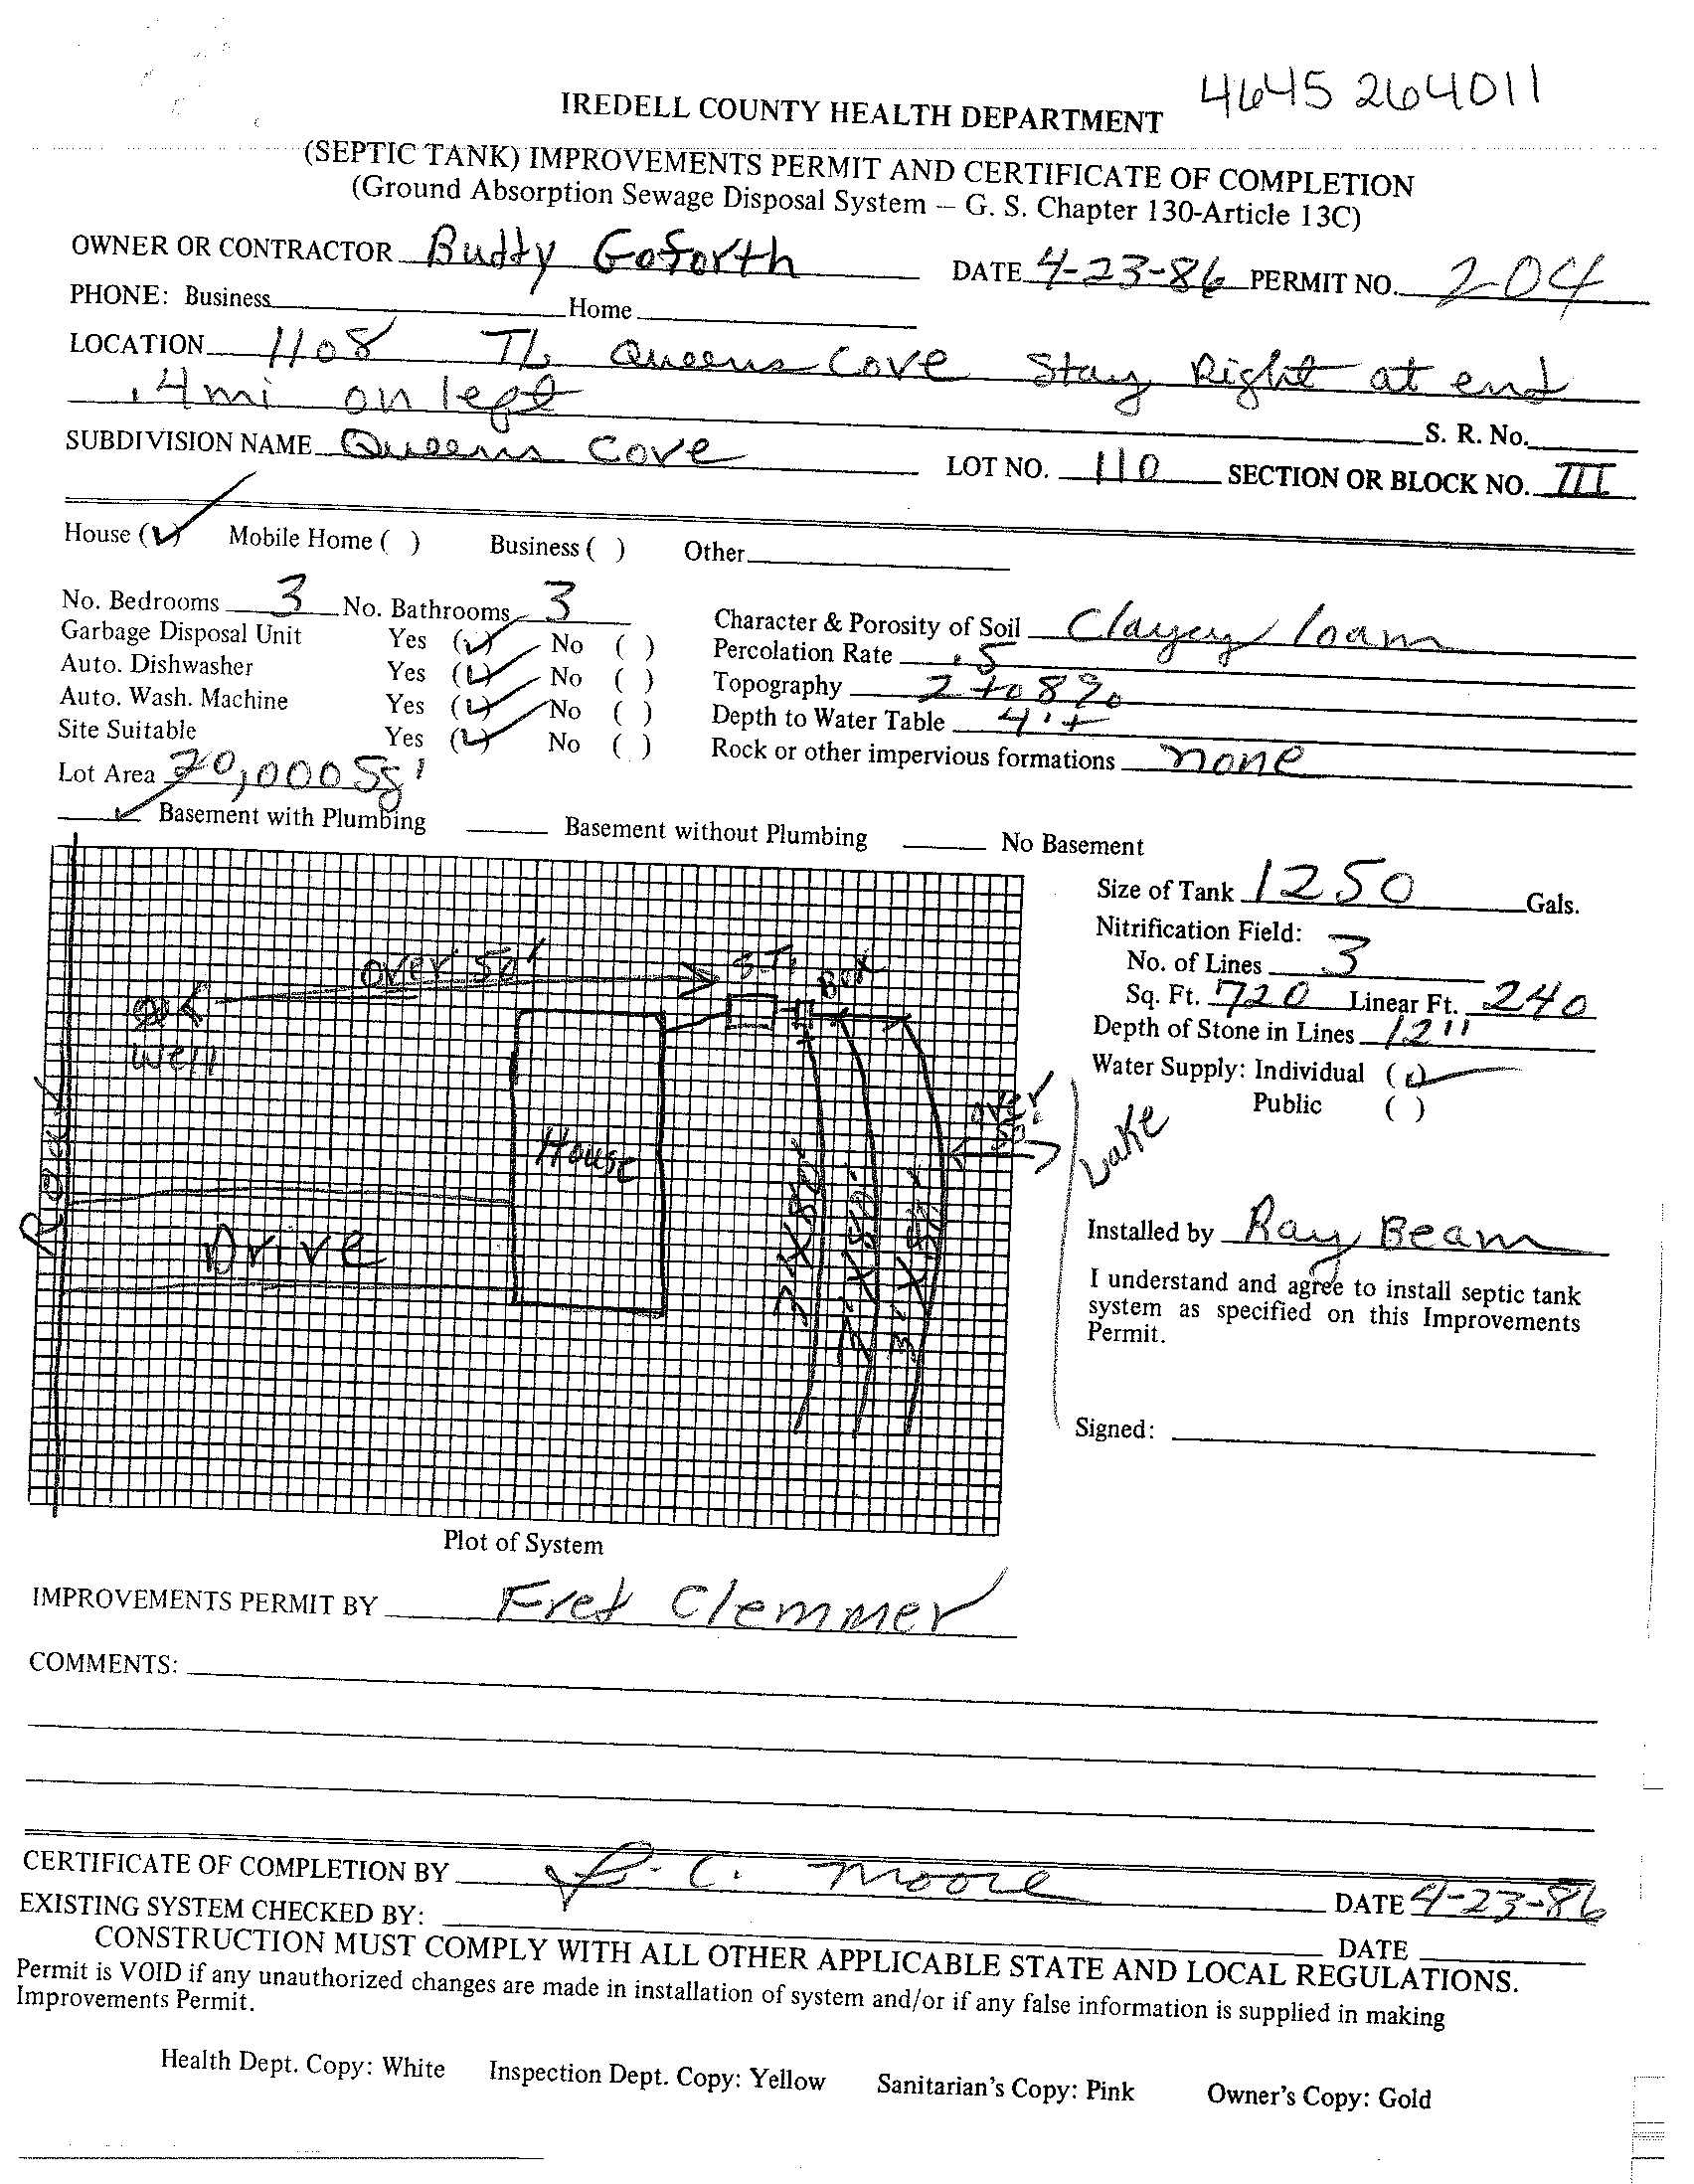 4645 264011
IREDELL COUNTY HEALTH DEPARTMENT
(SEPTIC TANK) IMPROVEMENTS PERMIT AND CERTIFICATE OF COMPLETION
(Ground Absorption Sewage Disposal System — G. S. Chapter 130-Article 13C)
OWNER OR CONTRACTOR Buddy Goforth DATE 4-23-86 PERMIT NO. 204
PHONE: Business Home
LOCATION 1108 TL Queens Cove Stay Right at end
.4 mi on left
S. R. No.
SUBDIVISION NAME Queens Cove LOT NO. 110 SECTION OR BLOCK NO. III
House (✓) Mobile Home ( ) Business ( ) Other
No. Bedrooms 3 No. Bathrooms 3
Garbage Disposal Unit Yes (✓) No ( )
Auto. Dishwasher Yes (✓) No ( )
Auto. Wash. Machine Yes (✓) No ( )
Site Suitable Yes (✓) No ( )
Lot Area 20,000 Sq'
Character & Porosity of Soil Clayey loam
Percolation Rate .5
Topography 2 to 8%
Depth to Water Table 4'+
Rock or other impervious formations none
✓ Basement with Plumbing Basement without Plumbing No Basement
over 50'
S.T.
Box
Well
Road
House
Drive
3'X80'
3'X80'
3'X80'
over
50'
Lake
Size of Tank 1250 Gals.
Nitrification Field:
No. of Lines 3
Sq. Ft. 720 Linear Ft. 240
Depth of Stone in Lines 12"
Water Supply: Individual (✓)
Public ( )
Installed by Ray Beam
I understand and agree to install septic tank
system as specified on this Improvements
Permit.
Signed:
Plot of System
IMPROVEMENTS PERMIT BY Fred Clemmer
COMMENTS:
CERTIFICATE OF COMPLETION BY L. C. Moore DATE 4-23-86
EXISTING SYSTEM CHECKED BY: DATE
CONSTRUCTION MUST COMPLY WITH ALL OTHER APPLICABLE STATE AND LOCAL REGULATIONS.
Permit is VOID if any unauthorized changes are made in installation of system and/or if any false information is supplied in making
Improvements Permit.
Health Dept. Copy: White Inspection Dept. Copy: Yellow Sanitarian's Copy: Pink Owner's Copy: Gold